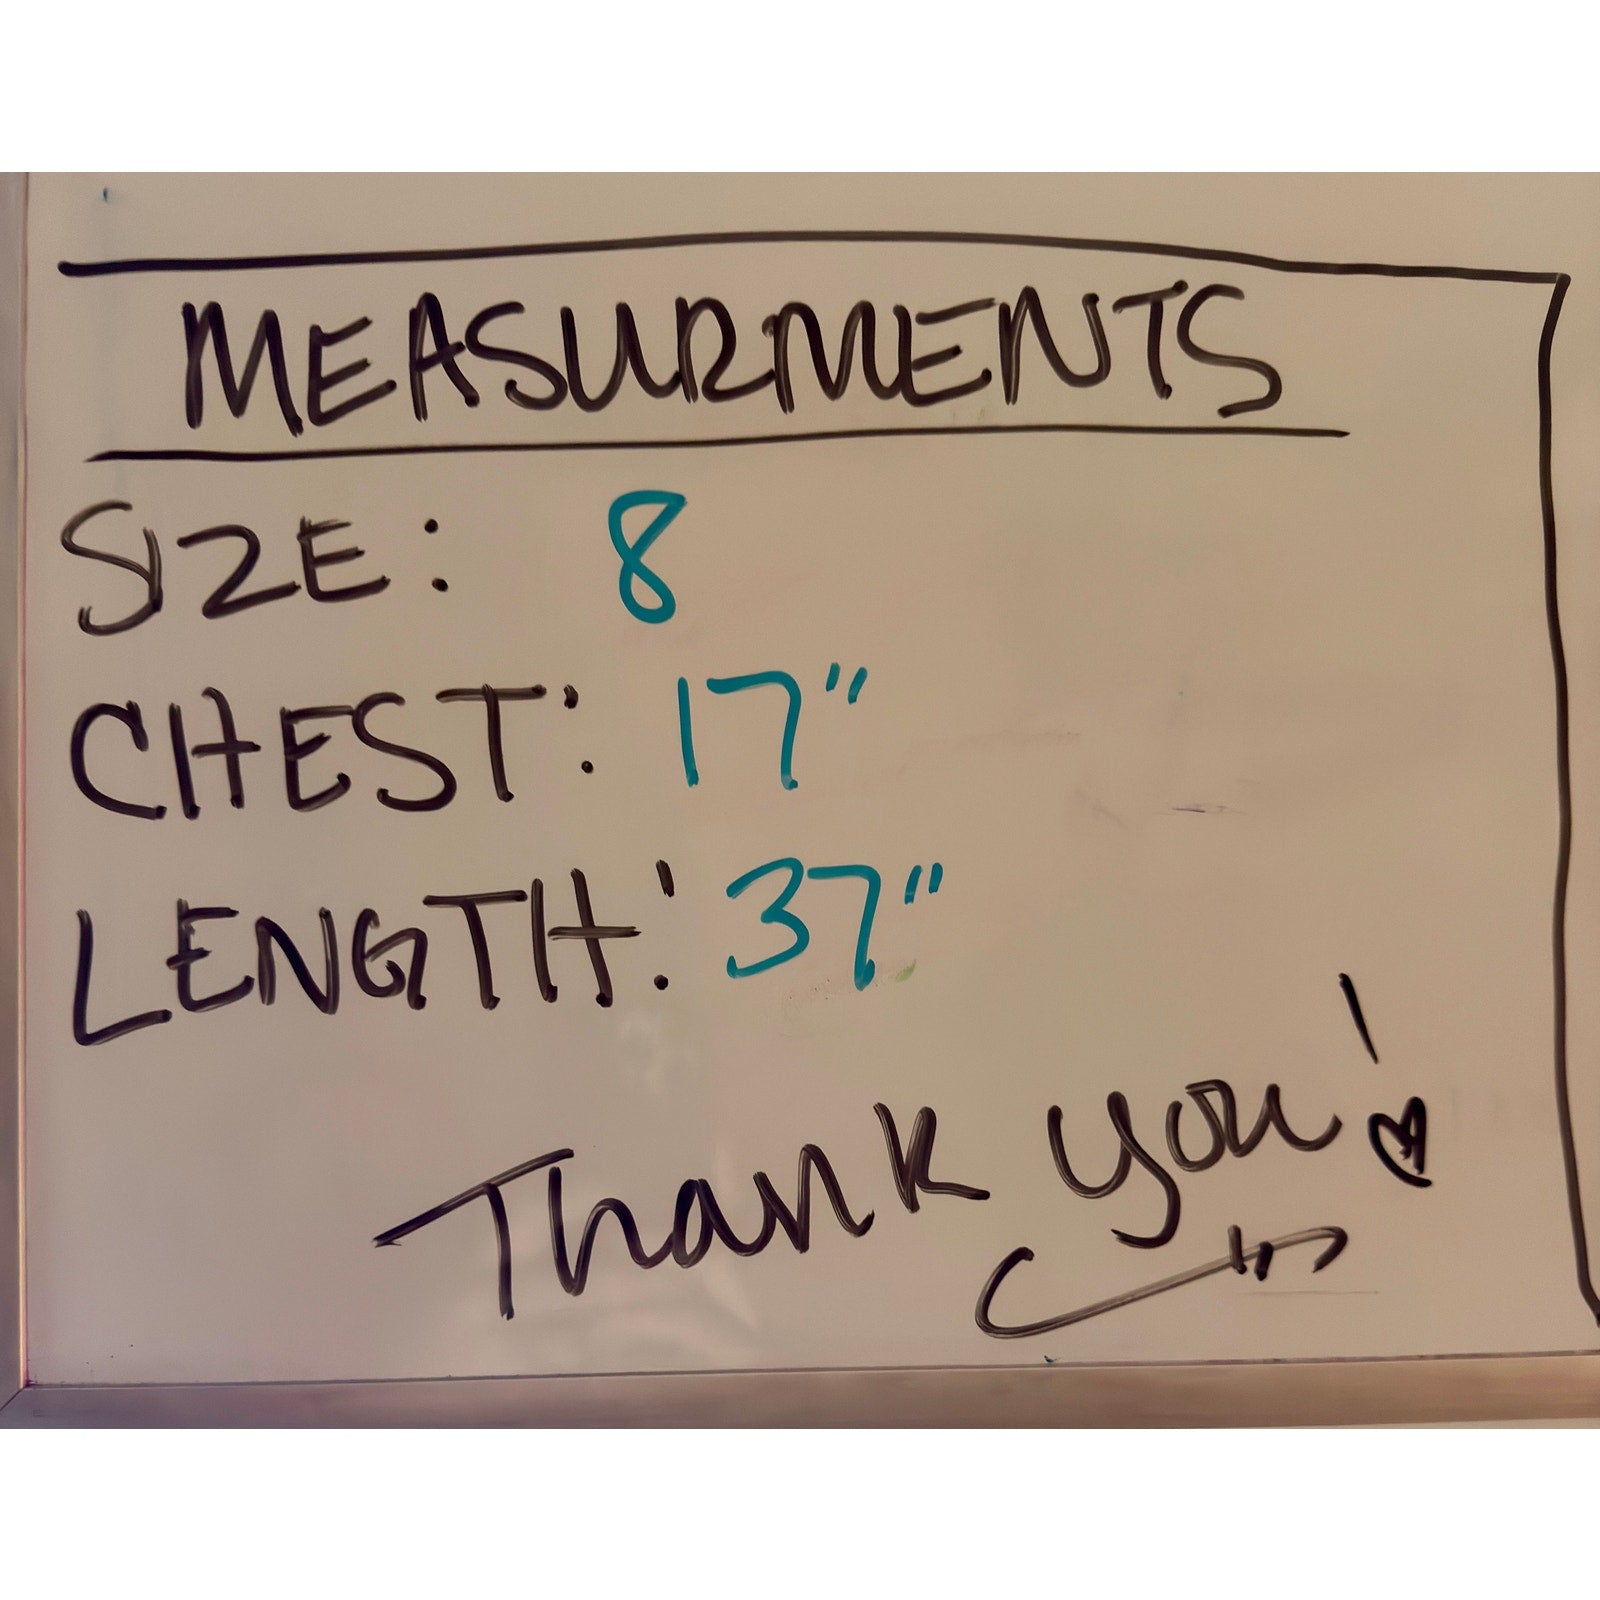 MEASURMENTS
SIZE: 8
CHEST: 17"
LENGTH: 37"
Thank you!